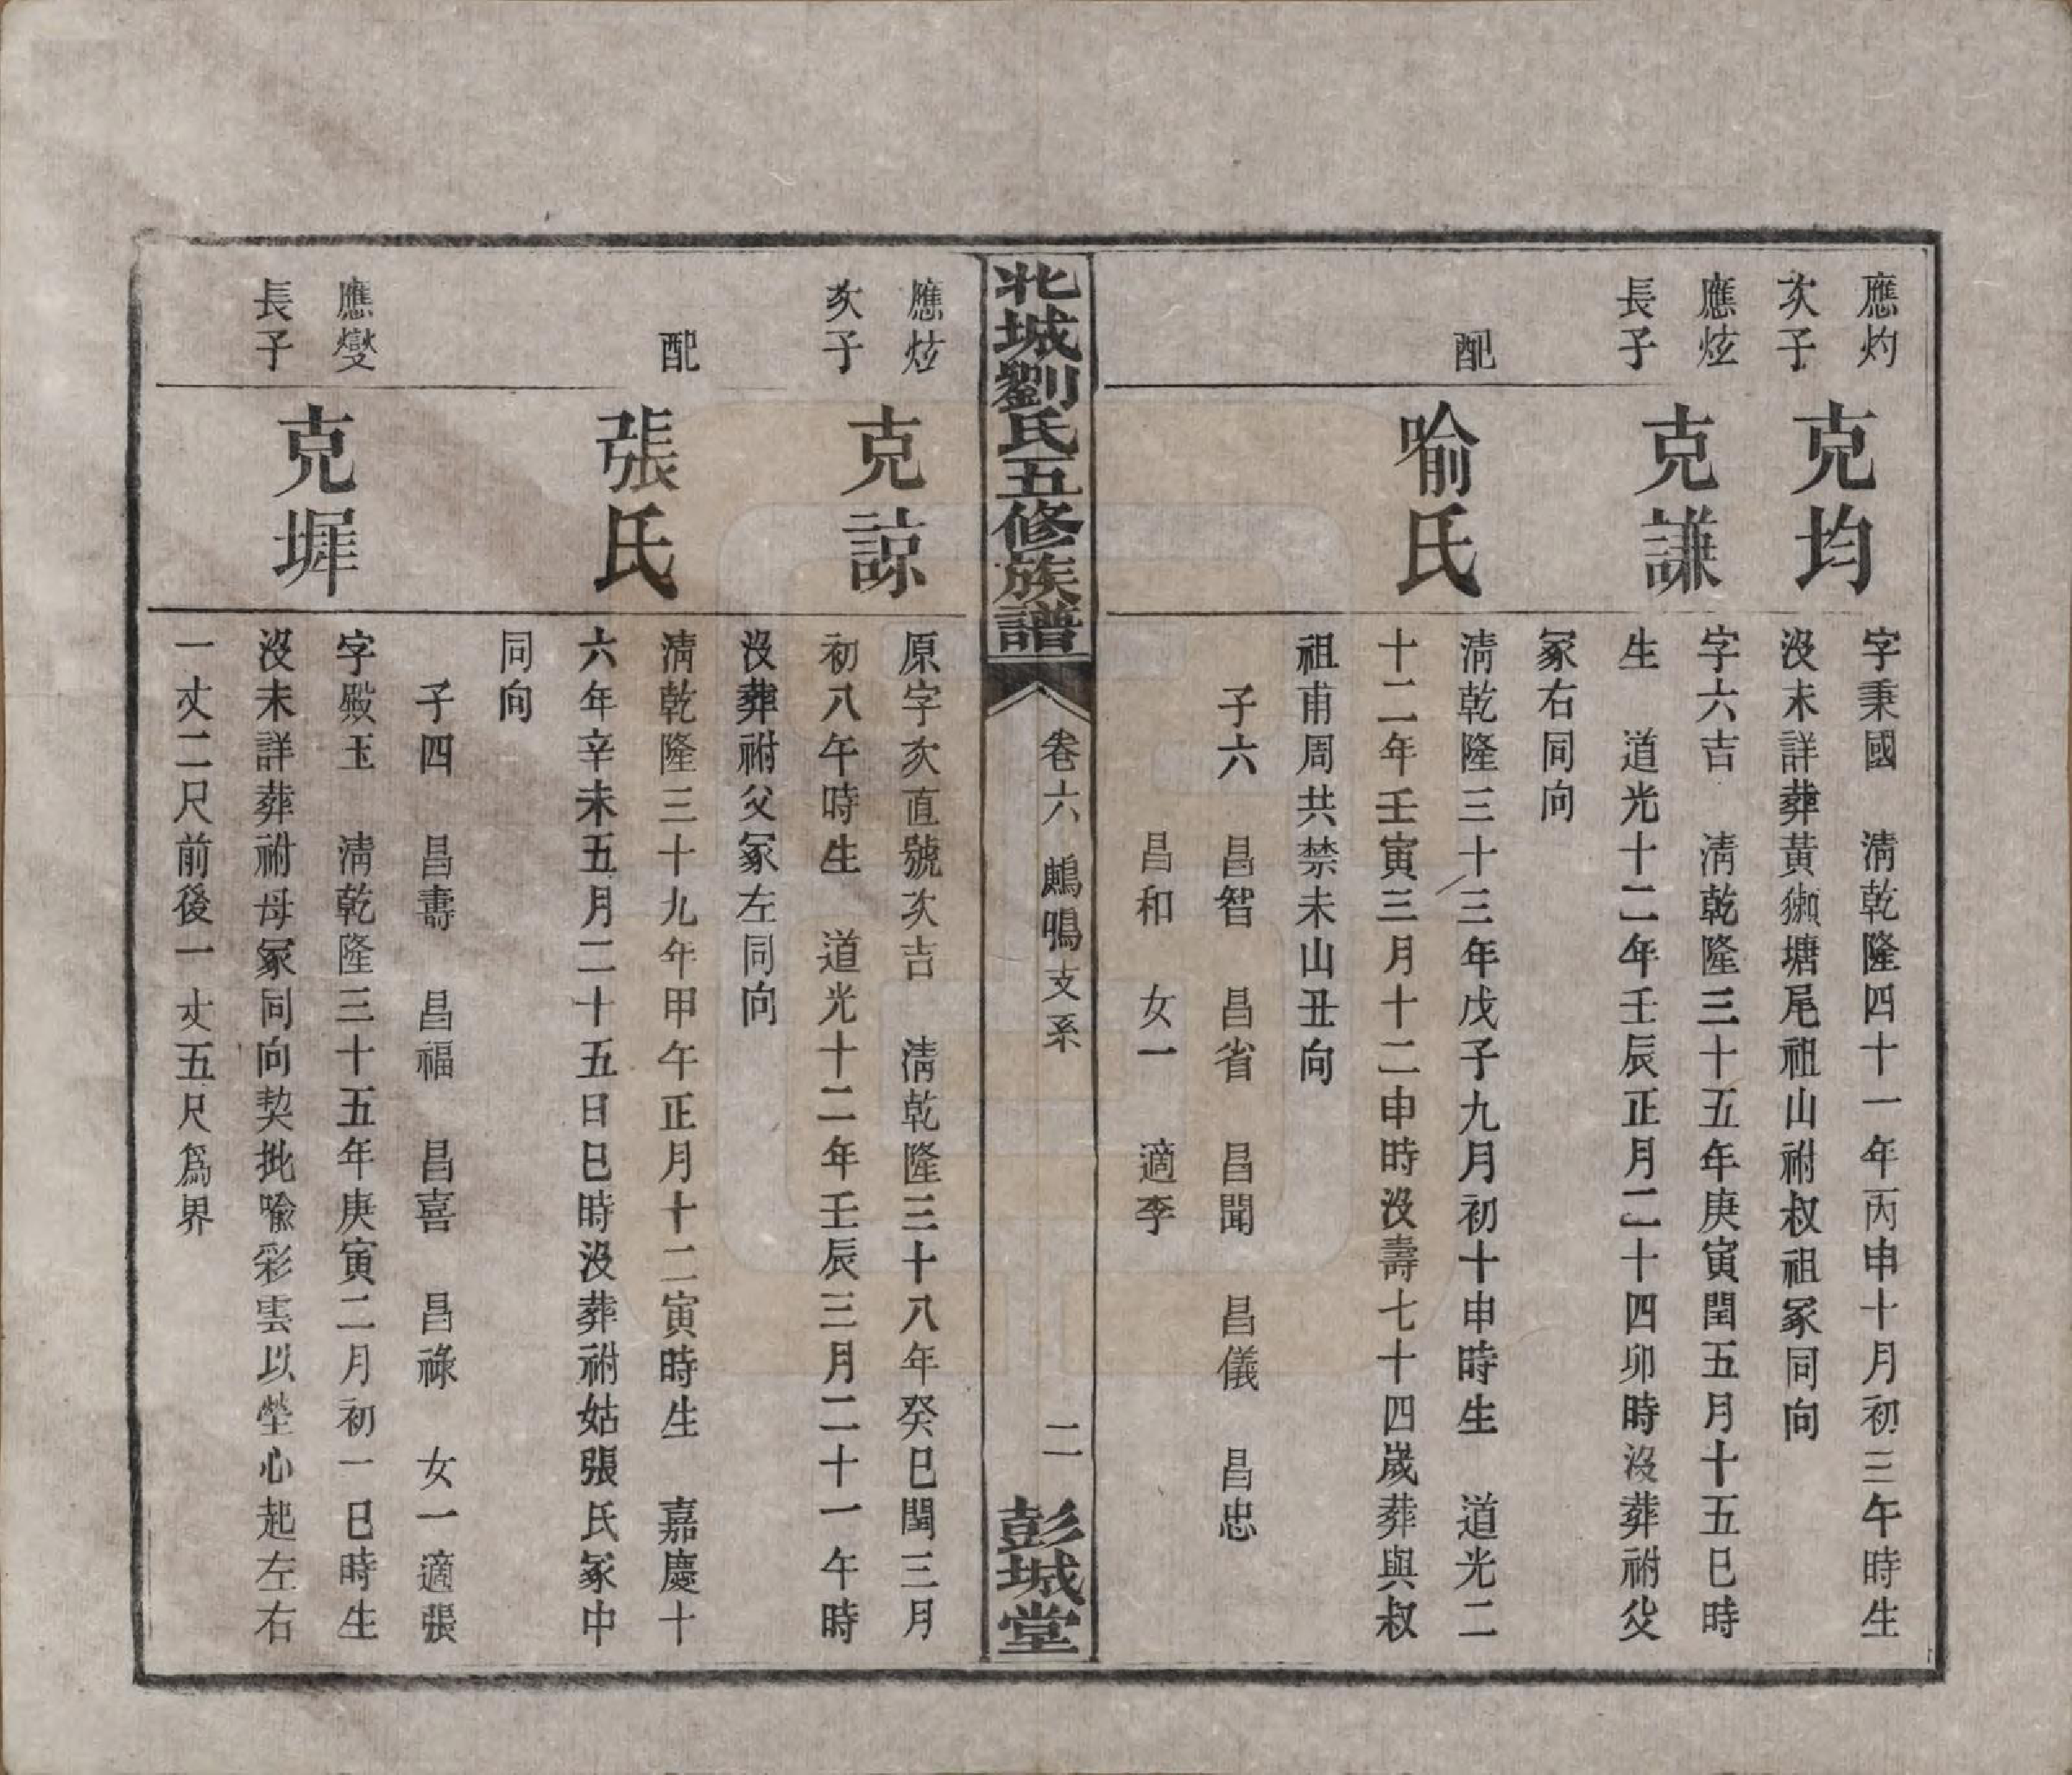 應灼
次子
克均
字秉國　淸乾隆四十一年丙申十月初三午時生
沒未詳葬黃獺塘尾祖山祔叔祖冢同向
應炫
長子
克謙
字六吉　淸乾隆三十五年庚寅閏五月十五巳時
生　道光十二年壬辰正月二十四卯時沒葬祔父
冢右同向
配
喻氏
淸乾隆三十三年戊子九月初十申時生　道光二
十二年壬寅三月十二申時沒壽七十四歲葬與叔
祖甫周共禁未山丑向
子六　昌智　昌省　昌聞　昌儀　昌忠
昌和　女一　適李
北城劉氏五修族譜
卷六　鷓鳴支系
二
彭城堂
應炫
次子
克諒
原字次直號次吉　淸乾隆三十八年癸巳閏三月
初八午時生　道光十二年壬辰三月二十一午時
沒葬祔父冢左同向
配
張氏
淸乾隆三十九年甲午正月十二寅時生　嘉慶十
六年辛未五月二十五日巳時沒葬祔姑張氏冢中
同向
子四　昌壽　昌福　昌喜　昌祿　女一適張
應燮
長子
克墀
字殿玉　淸乾隆三十五年庚寅二月初一巳時生
沒未詳葬祔母冢同向契批喻彩雲以塋心起左右
一丈二尺前後一丈五尺爲界